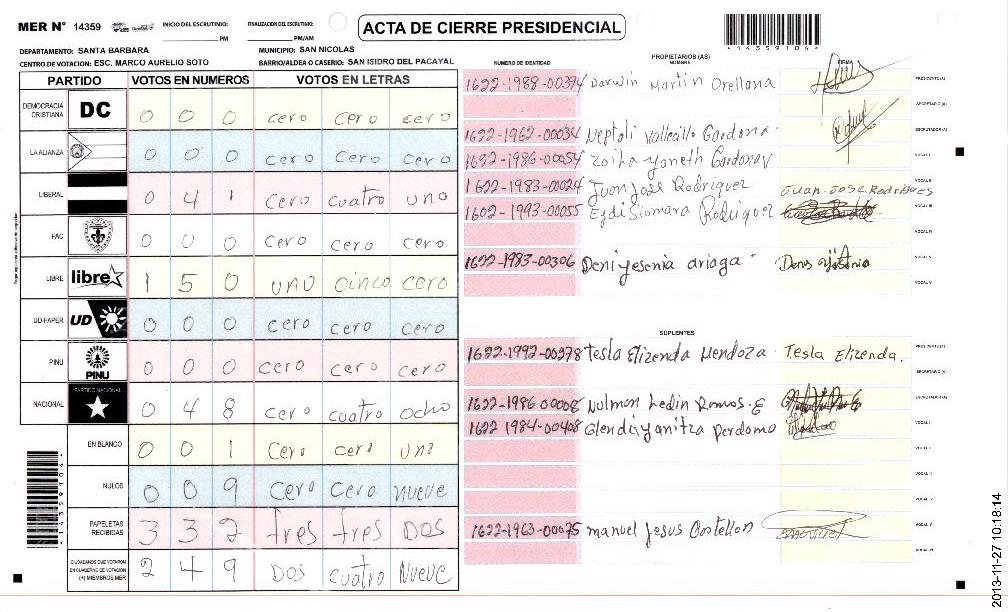 MER N° 14359
INICIO DEL ESCRUTINIO: PM
FINALIZACION DEL ESCRUTINIO: PM/AM
ACTA DE CIERRE PRESIDENCIAL
*14359104*
DEPARTAMENTO: SANTA BARBARA
MUNICIPIO: SAN NICOLAS
CENTRO DE VOTACION: ESC. MARCO AURELIO SOTO
BARRIO/ALDEA O CASERIO: SAN ISIDRO DEL PACAYAL
PARTIDO VOTOS EN NUMEROS VOTOS EN LETRAS
DEMOCRACIA CRISTIANA DC 0 0 0 cero cero cero
LA ALIANZA 0 0 0 cero cero cero
LIBERAL 0 4 1 cero cuatro uno
FAC 0 0 0 cero cero cero
LIBRE libre 1 5 0 uno cinco cero
UD-FAPER UD 0 0 0 cero cero cero
PINU PINU 0 0 0 cero cero cero
NACIONAL PARTIDO NACIONAL 0 4 8 cero cuatro ocho
EN BLANCO 0 0 1 cero cero uno
NULOS 0 0 9 cero cero nueve
PAPELETAS RECIBIDAS 3 3 2 tres tres DOS
CIUDADANOS QUE VOTARON EN CUADERNO DE VOTACION (+) MIEMBROS MER 2 4 9 DOS cuatro Nueve
*14359104*
NUMERO DE IDENTIDAD
PROPIETARIOS (AS)
NOMBRE
FIRMA
1622-1988-00394 Darwin Martin Orellana PRESIDENTE (A)
SECRETARIO (A)
1622-1962-00034 Neptali Vallecillo Cardona ESCRUTADOR (A)
1632-1986-00054 Zoila Yaneth Cardona V VOCAL I
1622-1983-00024 Juan Jose Rodriguez Juan Jose Rodrigues VOCAL II
1602-1993-00055 Eydi Siomara Rodriguez VOCAL III
VOCAL IV
1622-1983-00306 Deni yesenia ariaga Denis yesenia VOCAL V
VOCAL VI
SUPLENTES
1622-1992-00278 Tesla Elizenda Mendoza Tesla Elizenda. PRESIDENTE (A)
SECRETARIO (A)
1622-1986 00008 Nulman Ledin Ramos. E ESCRUTADOR (A)
1622 1984-00408 Glenda yanitza Perdomo VOCAL I
VOCAL II
VOCAL III
VOCAL IV
1622-1963-00075 manuel Jesus Castellon manuel VOCAL V
VOCAL VI
2013-11-27 10:18:14